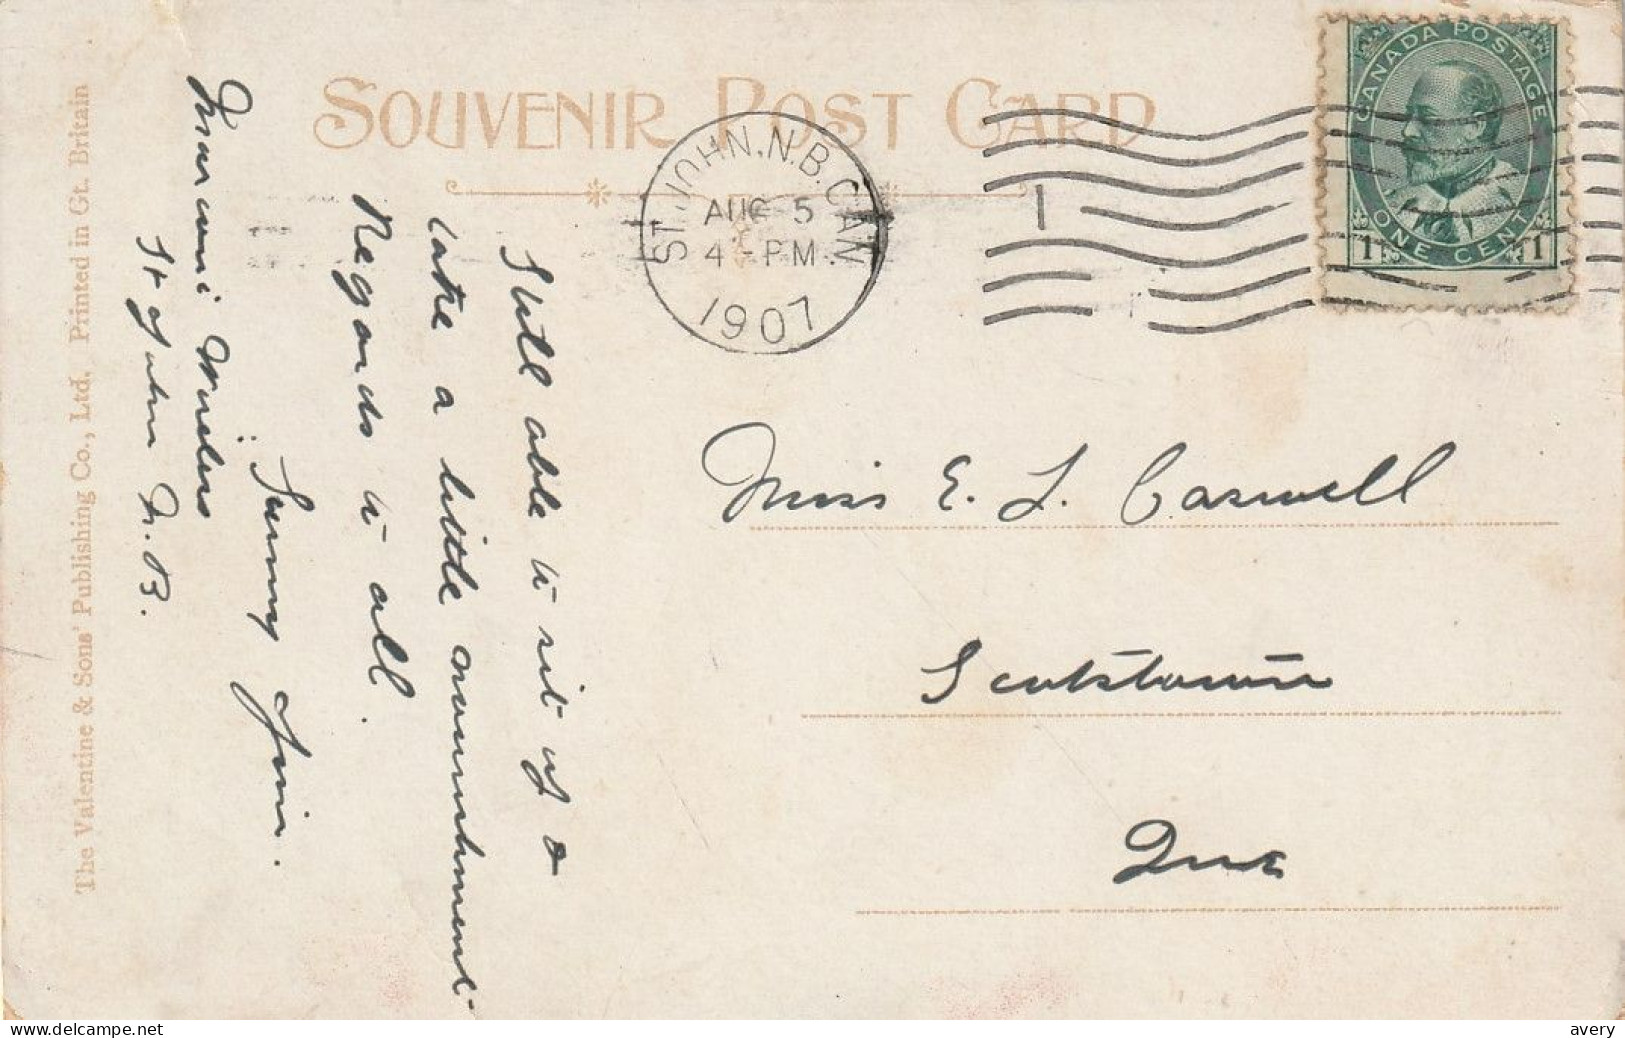 SOUVENIR POST CARD
CANADA POSTAGE
1 ONE CENT 1
ST. JOHN, N.B. CAN.
AUG 5
4 - PM
1907
1
Still able to sit up &
take a little nourishment.
Regards to all.
Sunny Jim.
Marconi Wireless
St John N.B.
Miss E. L. Caswell
Scotstown
Que
The Valentine & Sons' Publishing Co., Ltd. Printed in Gt. Britain
www.delcampe.net
avery